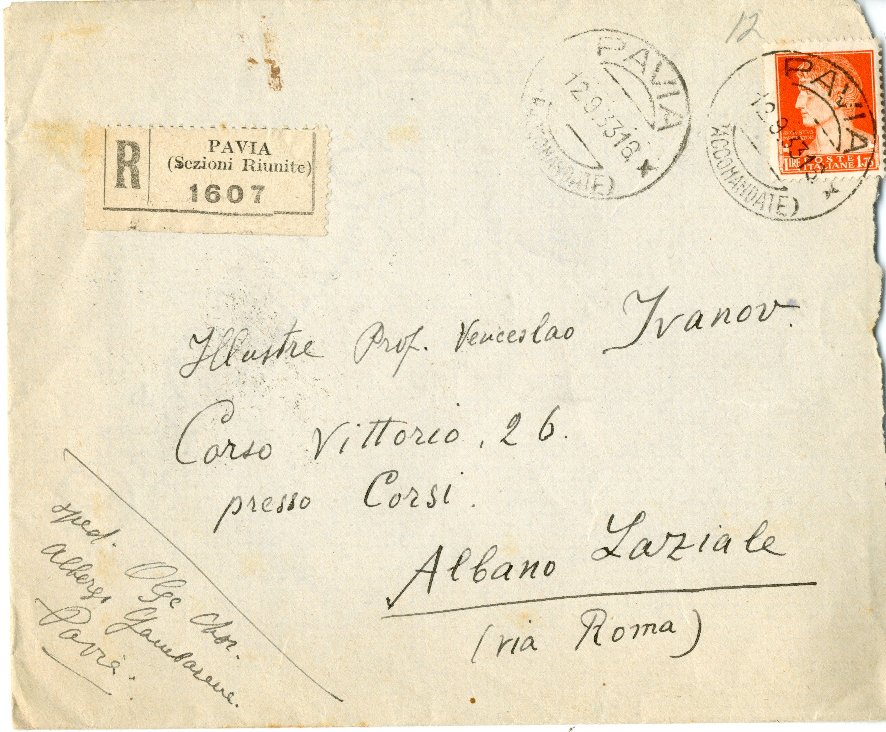 12
PAVIA
12.9.33.18
PAVIA
12.9.33.18
(RACCOMANDATE)
LIRE POSTE ITALIANE 1,75
R
PAVIA
(Sezioni Riunite)
1607
Illustre Prof. Venceslao Ivanov.
Corso Vittorio, 26.
presso Corsi.
Albano Laziale
(via Roma)
sped. Olga Chor.
Albergo Gambarana.
Pavia.